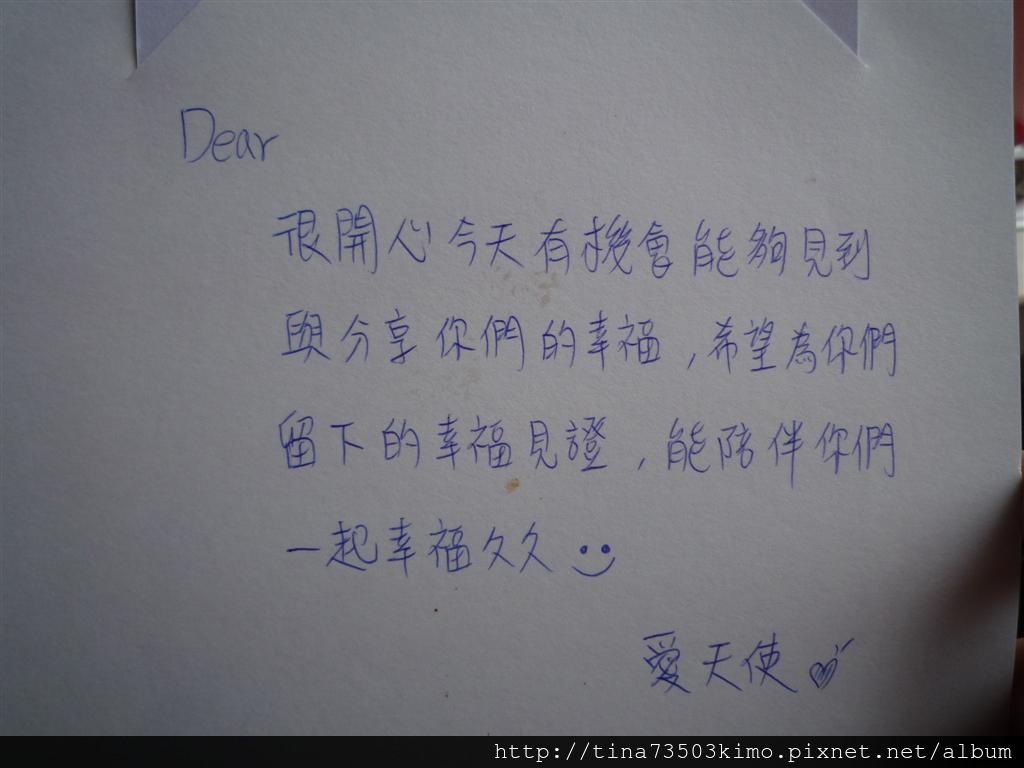 Dear
很開心今天有機會能夠見到
與分享你們的幸福,希望為你們
留下的幸福見證,能陪伴你們
一起幸福久久
愛天使
http://tina73503kimo.pixnet.net/album